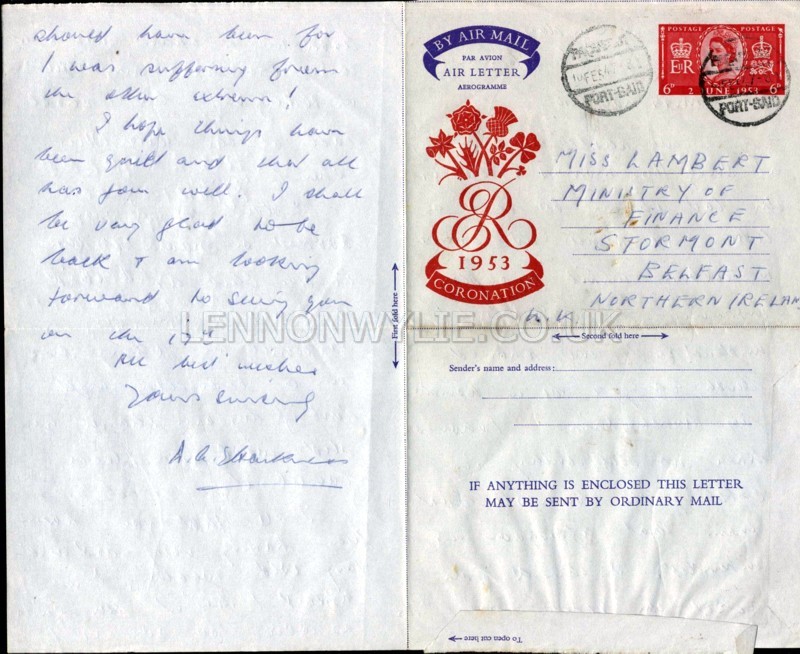 should have been for
I was suffering from
the other extreme!
I hope things have
been quiet and that all
has gone well. I shall
be very glad to be
back & am looking
forward to seeing you
on the 17th
All best wishes
Yours sincerely
First fold here
BY AIR MAIL
PAR AVION
AIR LETTER
AEROGRAMME
1953
CORONATION
PORT-SAID
POSTAGE POSTAGE
E R
6D 2 JUNE 1953 6D
PORT-SAID
MISS LAMBERT
MINISTRY OF
FINANCE
STORMONT
BELFAST
NORTHERN IRELAN
U.K
LENNONWYLIE.CO.UK
Second fold here
Sender's name and address:
IF ANYTHING IS ENCLOSED THIS LETTER
MAY BE SENT BY ORDINARY MAIL
To open cut here